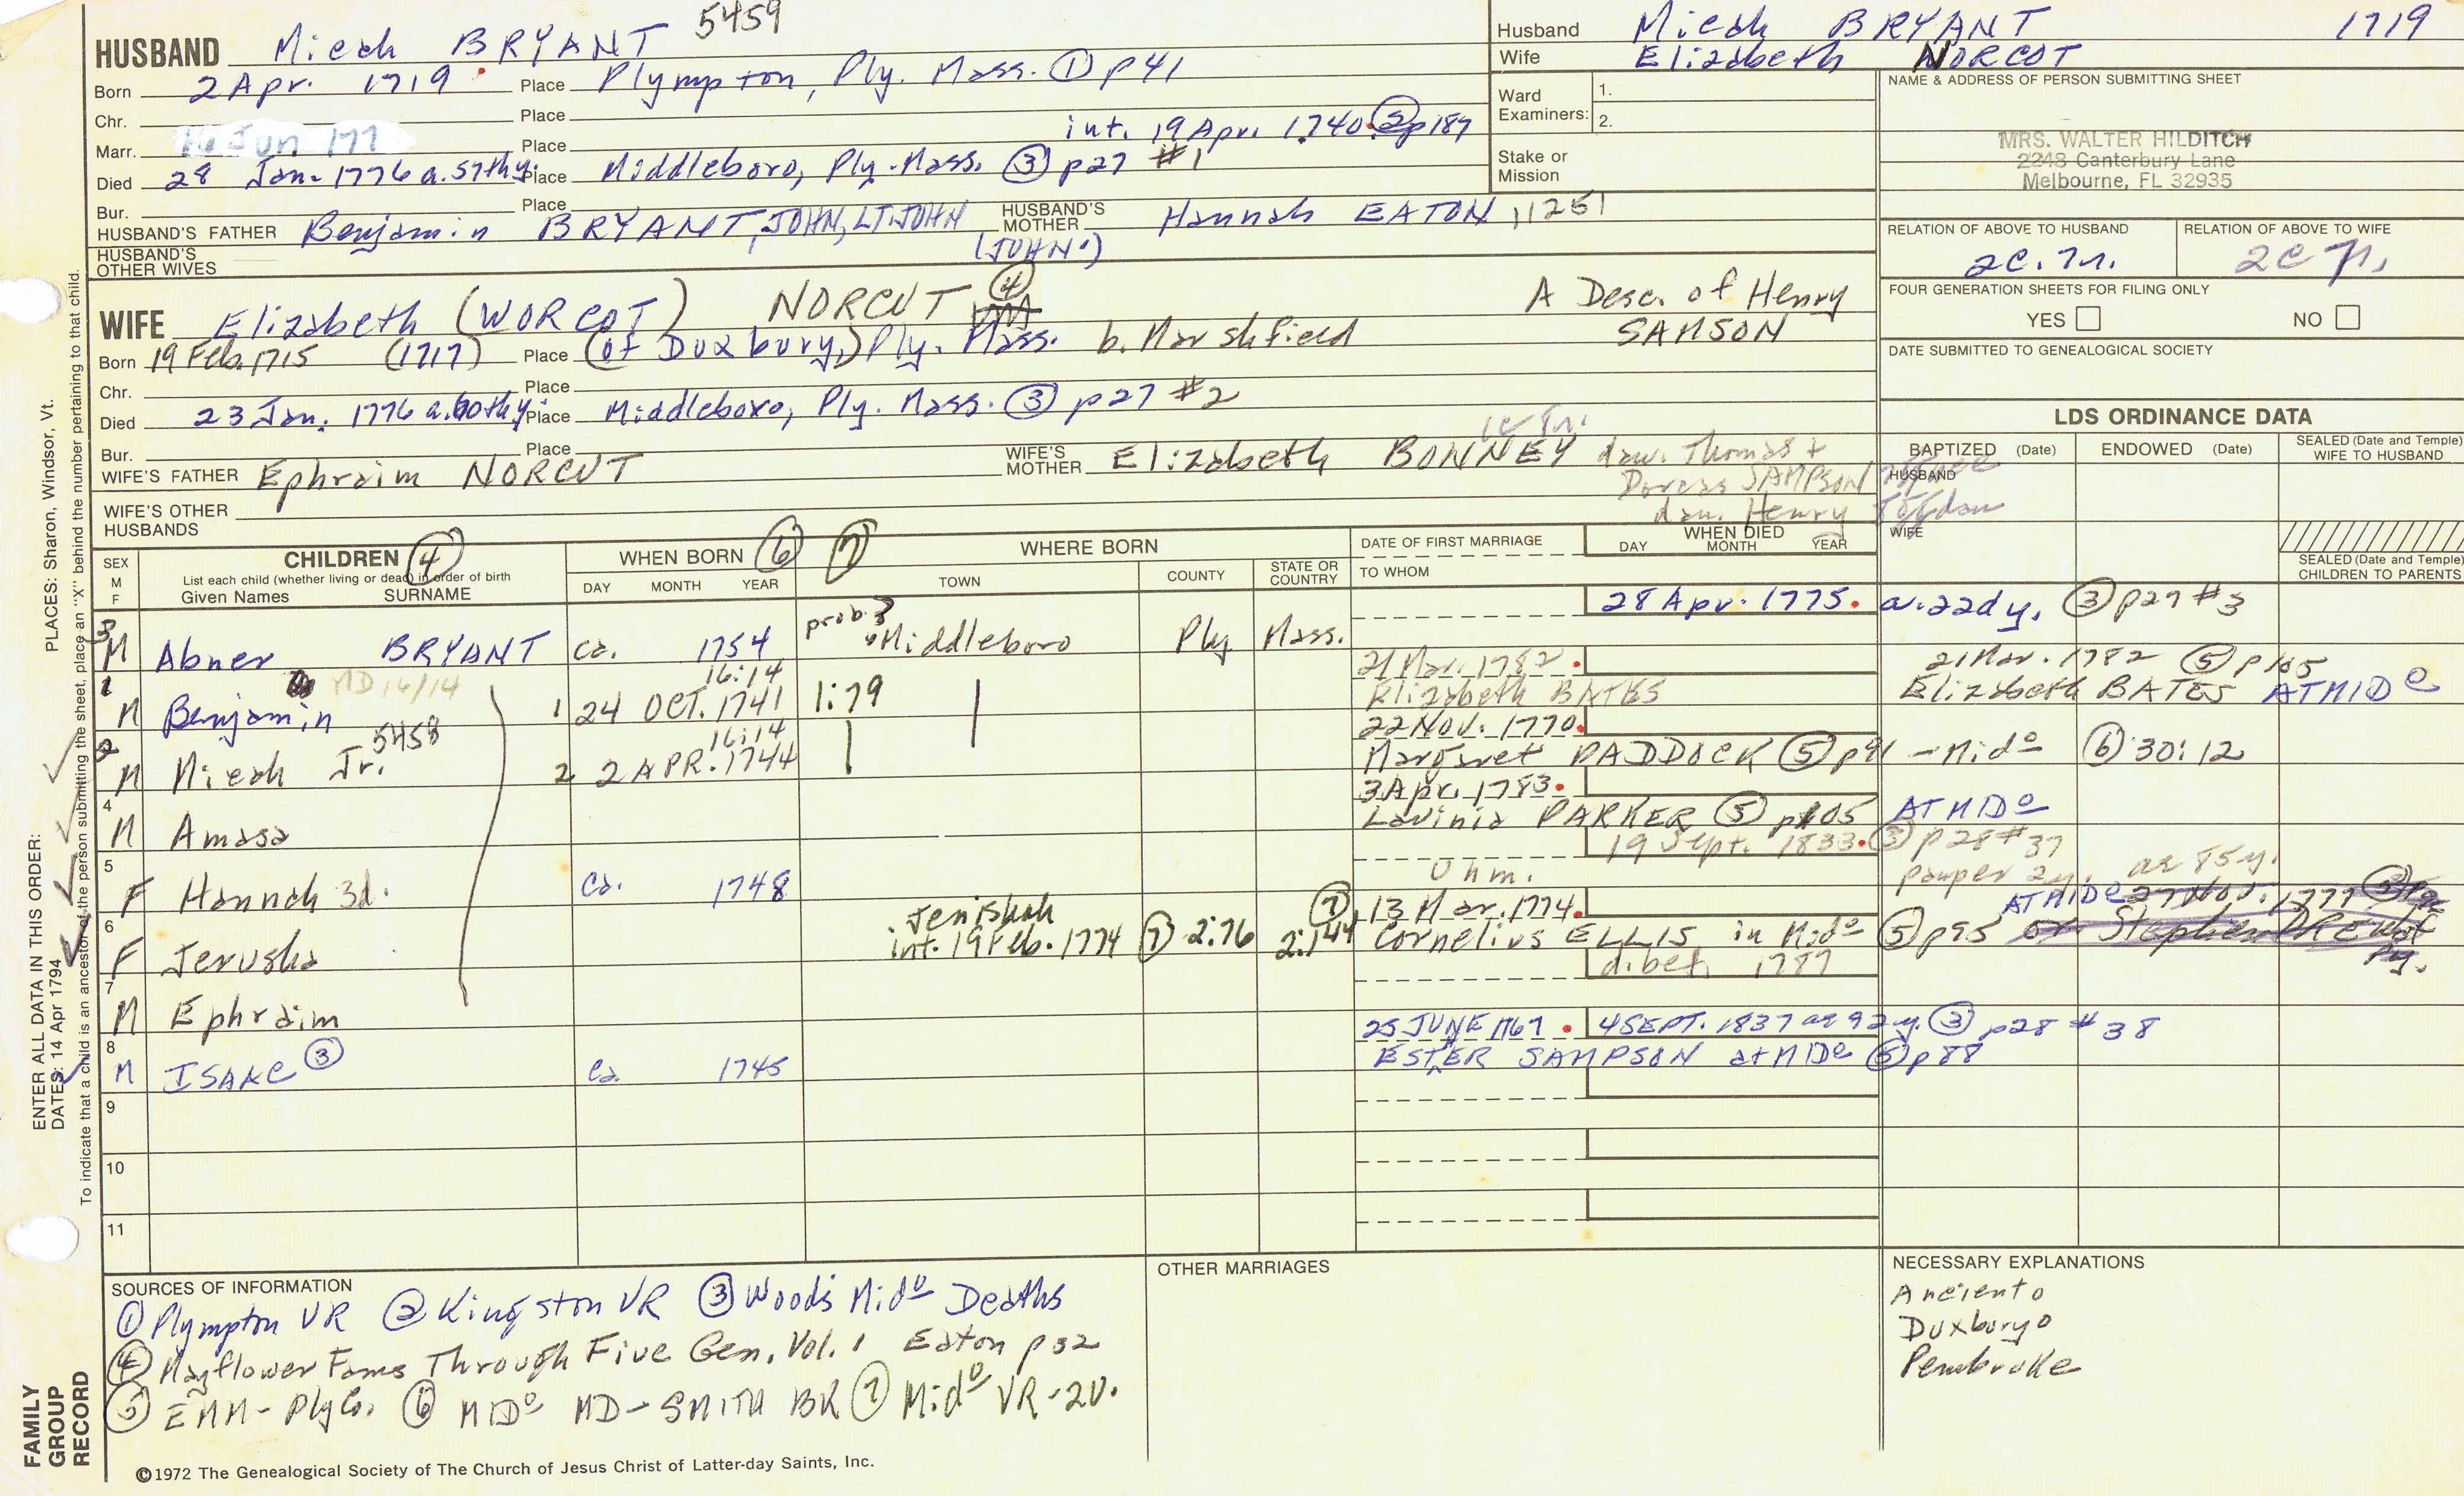 5459
HUSBAND Micah BRYANT
Born 2 Apr. 1719 Place Plympton, Ply. Mass. ① p41
Chr. Place
Marr. Jun 177 Place int. 19 Apr. 1740. ② p187
Died 28 Jan. 1776 a. 57th y. Place Middleboro, Ply. Mass. ③ p27 #1
Bur. Place
HUSBAND'S FATHER Benjamin BRYANT, JOHN, LT. JOHN (JOHN¹) HUSBAND'S MOTHER Hannah EATON 11251
HUSBAND'S OTHER WIVES
Husband Micah BRYANT 1719
Wife Elizabeth NORCOT
Ward Examiners: 1.
2.
Stake or Mission
NAME & ADDRESS OF PERSON SUBMITTING SHEET
MRS. WALTER HILDITCH
2248 Canterbury Lane
Melbourne, FL 32935
RELATION OF ABOVE TO HUSBAND RELATION OF ABOVE TO WIFE
2c. 7r. 2c 7r.
FOUR GENERATION SHEETS FOR FILING ONLY
YES NO
DATE SUBMITTED TO GENEALOGICAL SOCIETY
WIFE Elizabeth (WORCOT) NORCUT ④ A Desc. of Henry SAMSON
Born 19 Feb. 1715 (1717) Place (of Duxbury,) Ply. Mass. b. Marshfield
Chr. Place
Died 23 Jan. 1776 a. 60th y. Place Middleboro, Ply. Mass. ③ p27 #2
Bur. Place
WIFE'S FATHER Ephraim NORCUT WIFE'S MOTHER Elizabeth BONNEY daw. Thomas +
Dorcas SAMPSON
dau. Henry
WIFE'S OTHER HUSBANDS
LDS ORDINANCE DATA
BAPTIZED (Date) ENDOWED (Date) SEALED (Date and Temple) WIFE TO HUSBAND
HUSBAND
WIFE
SEALED (Date and Temple) CHILDREN TO PARENTS
SEX M F CHILDREN ④ List each child (whether living or dead) in order of birth Given Names SURNAME
WHEN BORN ⑥ DAY MONTH YEAR ⑦ WHERE BORN TOWN COUNTY STATE OR COUNTRY
DATE OF FIRST MARRIAGE TO WHOM WHEN DIED DAY MONTH YEAR
28 Apr. 1775. a. 22d y. ③ p27 #3
3 M Abner BRYANT ca. 1754 prob.? Middleboro Ply Mass.
21 Mar. 1782. 21 Mar. 1782 ⑤ p105
1 M Benjamin MD 16/14 1 24 OCT. 1741 16:14 1:79 Elizabeth BATES Elizabeth BATES AT MIDo
22 NOV. 1770.
2 M Micah Jr. 5458 2 2 APR. 1744 16:14 Margaret PADDOCK ⑤ p91 - Mido ⑥ 30:12
3 Apr. 1783.
4 M Amasa Lavinia PARKER ⑤ p105 AT MIDo
19 Sept. 1833. ③ p28 #37
5 F Hannah 3d. ca. 1748 Unm. pauper ae 85 y.
⑦ 13 Mar. 1774. AT MIDo 27 Nov. 1777
6 F Jerusha Jerishah int. 19 Feb. 1774 ⑦ 2:76 2:144 Cornelius ELLIS in Mido ⑤ p95 or Stephen DREW of Py.
d. bet. 1787
7 M Ephraim
25 JUNE 1767. 4 SEPT. 1837 ae 92 y. ③ p28 #38
8 M ISAAC ③ ca. 1745 ESTER SAMPSON at MIDo ⑤ p88
9
10
11
SOURCES OF INFORMATION
① Plympton VR ② Kingston VR ③ Woods Mido Deaths
④ Mayflower Fams Through Five Gen. Vol. 1 Eaton p32
⑤ EMM - Ply Co. ⑥ MIDo MD - SMITH BK ⑦ Mido VR - 2V.
OTHER MARRIAGES
NECESSARY EXPLANATIONS
Anciento
Duxburyo
Pembroke
©1972 The Genealogical Society of The Church of Jesus Christ of Latter-day Saints, Inc.
FAMILY GROUP RECORD
ENTER ALL DATA IN THIS ORDER:
DATES: 14 Apr 1794 PLACES: Sharon, Windsor, Vt.
To indicate that a child is an ancestor of the person submitting the sheet, place an "X" behind the number pertaining to that child.